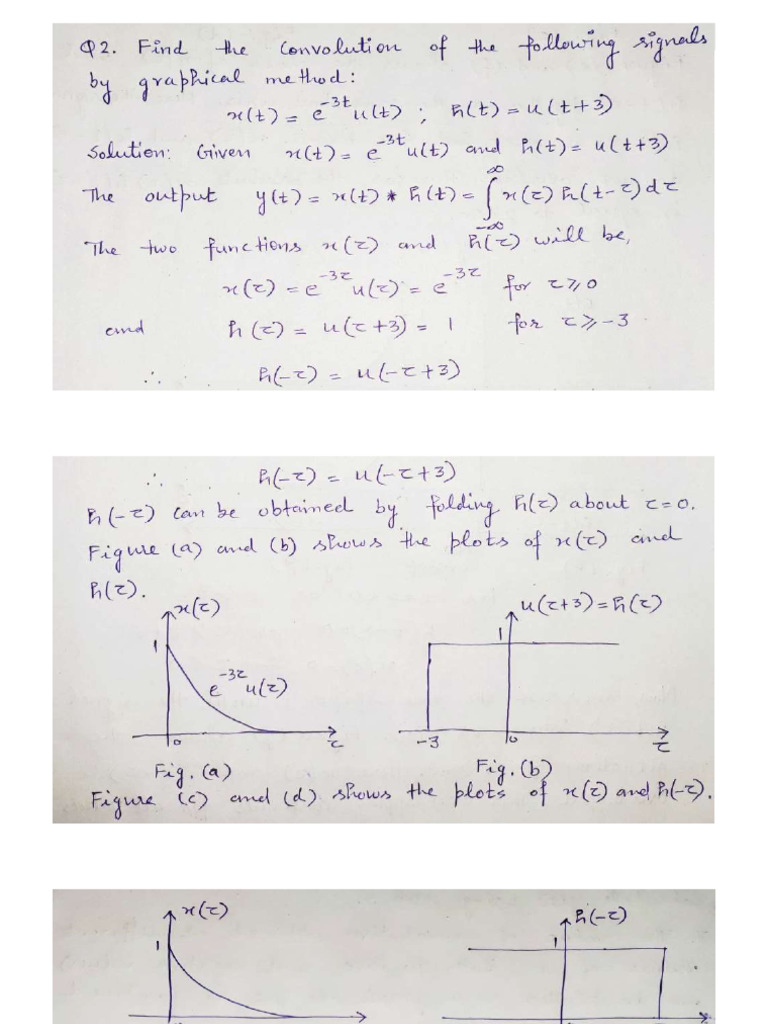 Q2. Find the convolution of the following signals
by graphical method:
x(t) = e^{-3t}u(t) ; h(t) = u(t+3)
Solution: Given x(t) = e^{-3t}u(t) and h(t) = u(t+3)
The output y(t) = x(t) * h(t) = ∫_{-∞}^{∞} x(τ) h(t-τ) dτ
The two functions x(τ) and h(τ) will be,
x(τ) = e^{-3τ}u(τ) = e^{-3τ} for τ ≥ 0
and h(τ) = u(τ+3) = 1 for τ ≥ -3
∴ h(-τ) = u(-τ+3)
∴ h(-τ) = u(-τ+3)
h(-τ) can be obtained by folding h(τ) about τ=0.
Figure (a) and (b) shows the plots of x(τ) and
h(τ).
x(τ)
1
e^{-3τ}u(τ)
0
τ
Fig. (a)
u(τ+3) = h(τ)
1
-3
0
τ
Fig. (b)
Figure (c) and (d) shows the plots of x(τ) and h(-τ).
x(τ)
1
h(-τ)
1